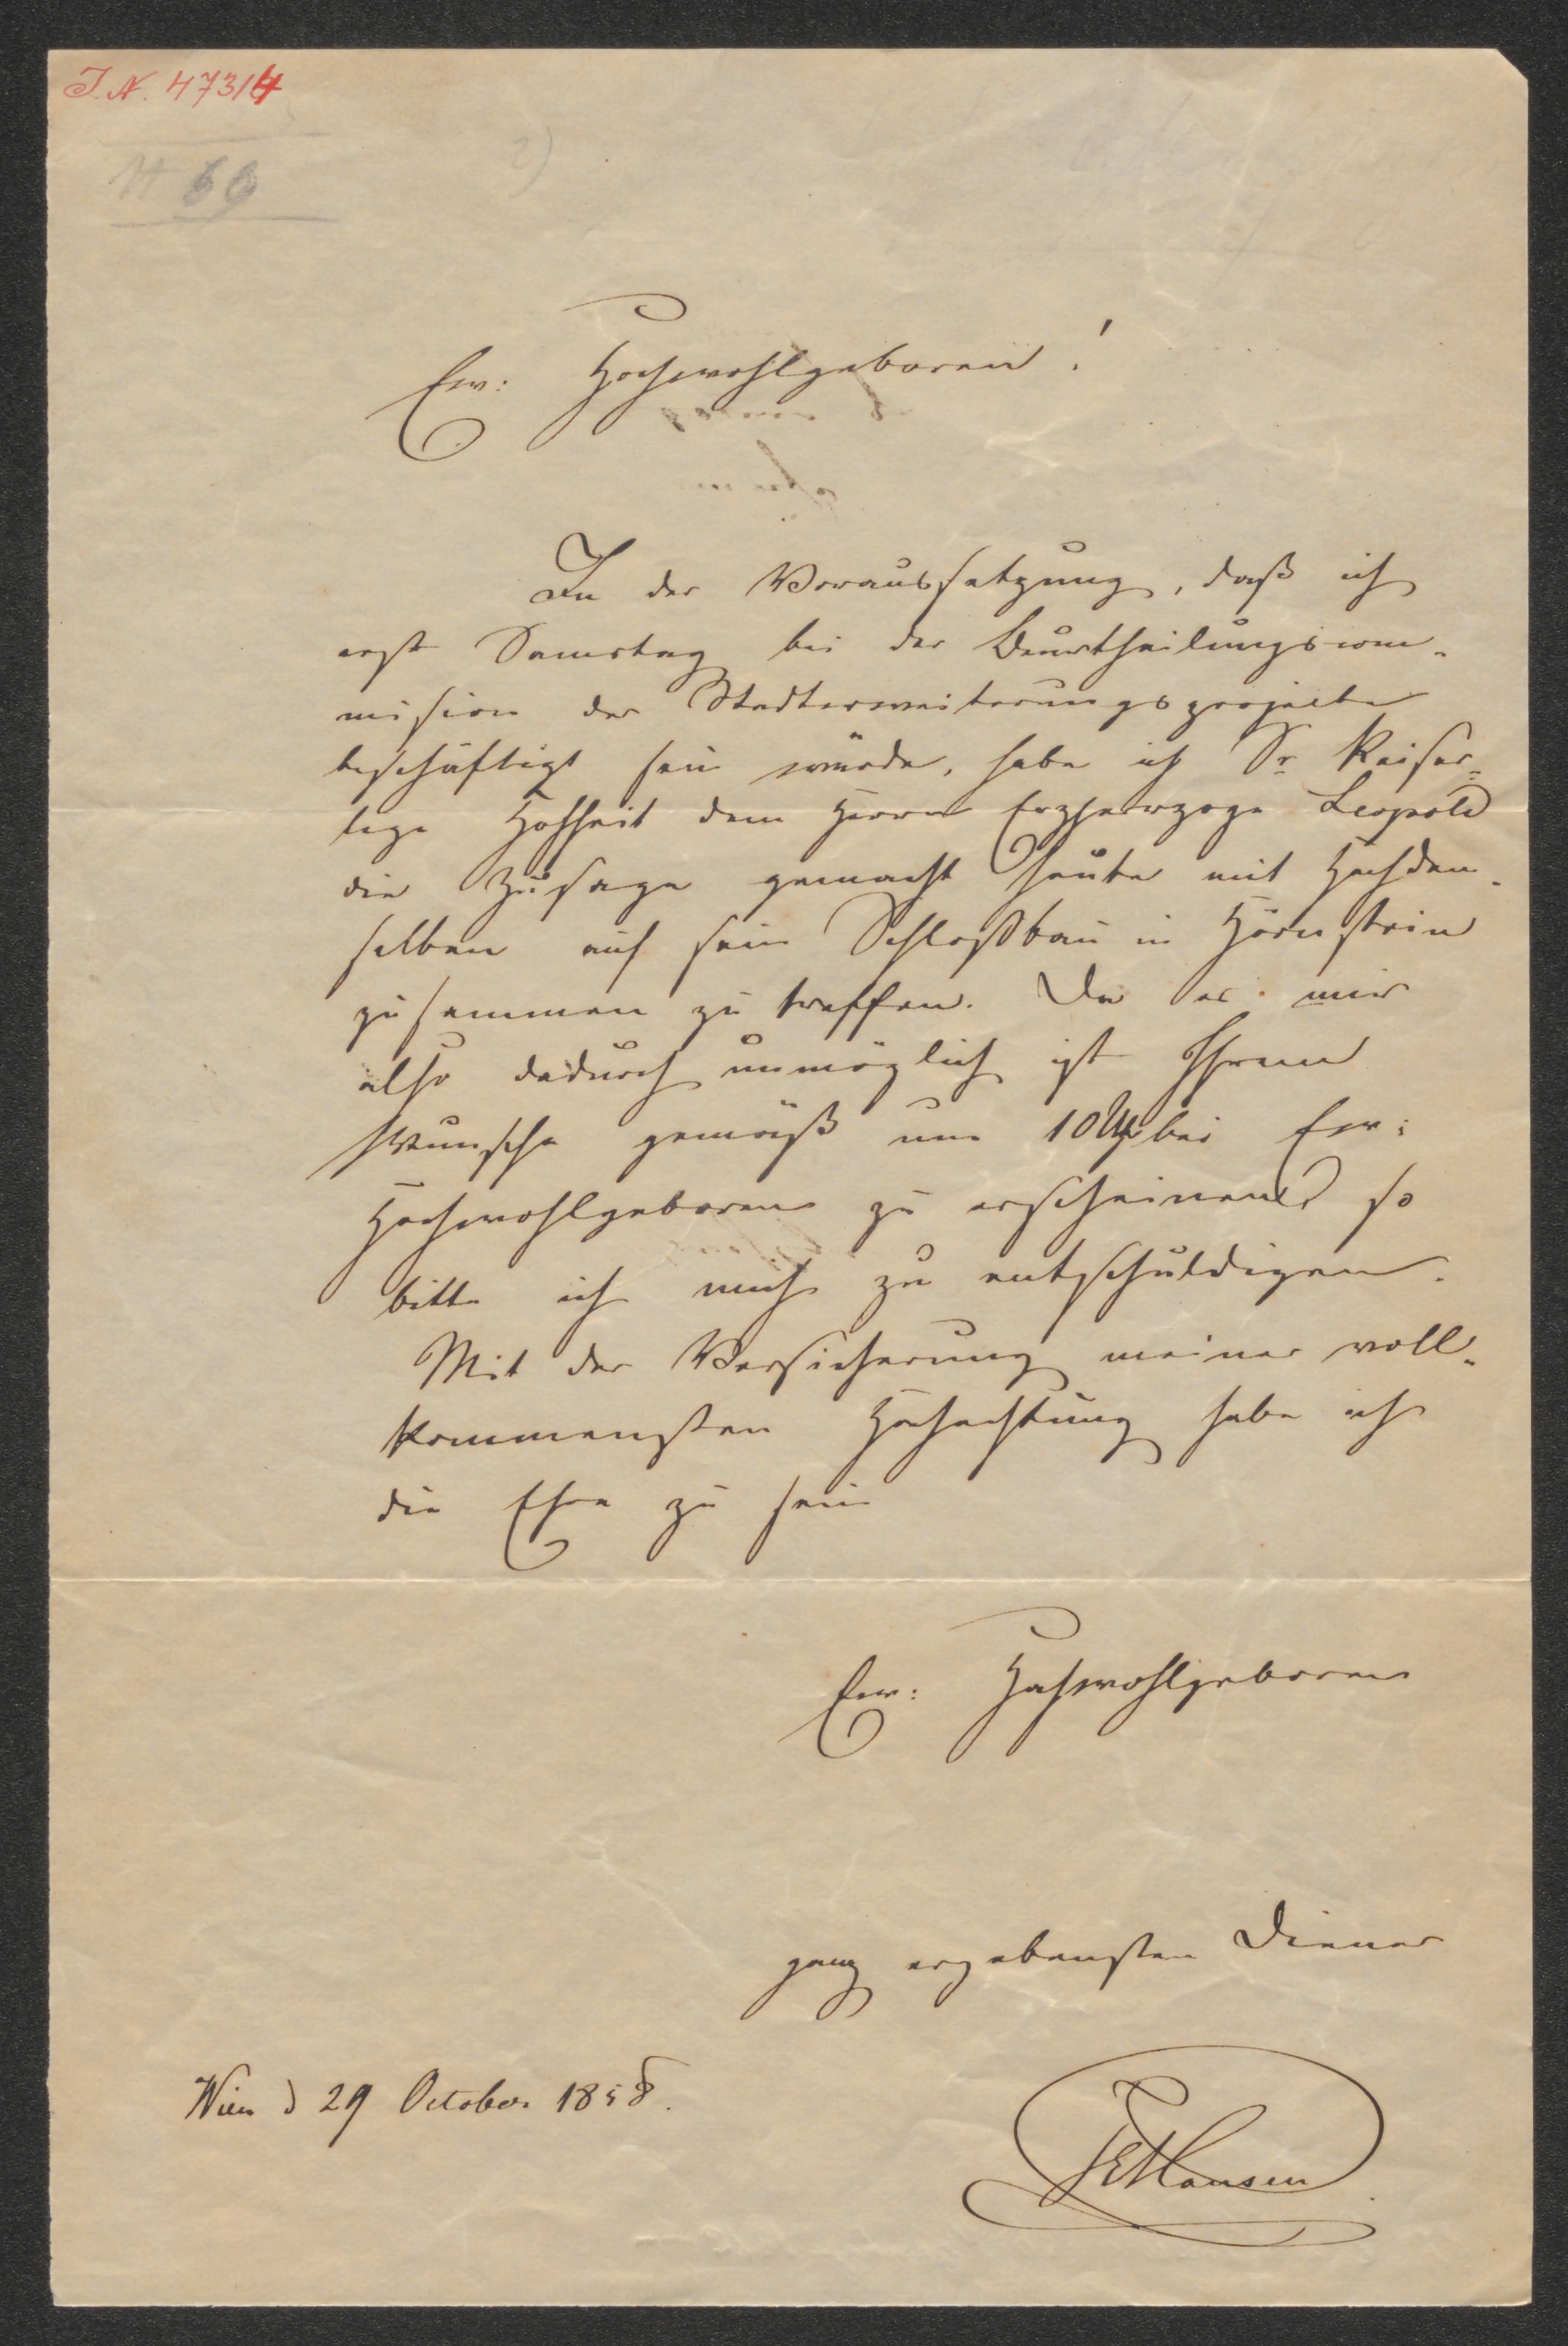 J. N. 47314
H 69
2)
Ew: Hochwohlgeboren!
In der Voraussetzung, daß ich
erst Samstag bei der Beurtheilungscom-
mision der Stadterweiterungsprojecte
beschäftigt sein würde, habe ich Sr Kaiser-
Hohheit dem Herrn Erzherzoge Leopold
die Zusage gemacht heute mit Hochden-
selben auf sein Schloßbau in Hörnstein
zusammen zu treffen. Da es mir
also dadurch unmöglich ist Ihrem
Wunsche gemäß um 10 Uhr bei Ew:
Hochwohlgeboren zu erscheinen so
bitte ich mich zu entschuldigen.
Mit der Versicherung meiner voll-
kommensten Hochachtung habe ich
die Ehre zu sein
Ew: Hochwohlgeboren
ganz ergebensten Diener
Wien d 29 October 1858.
Hansen